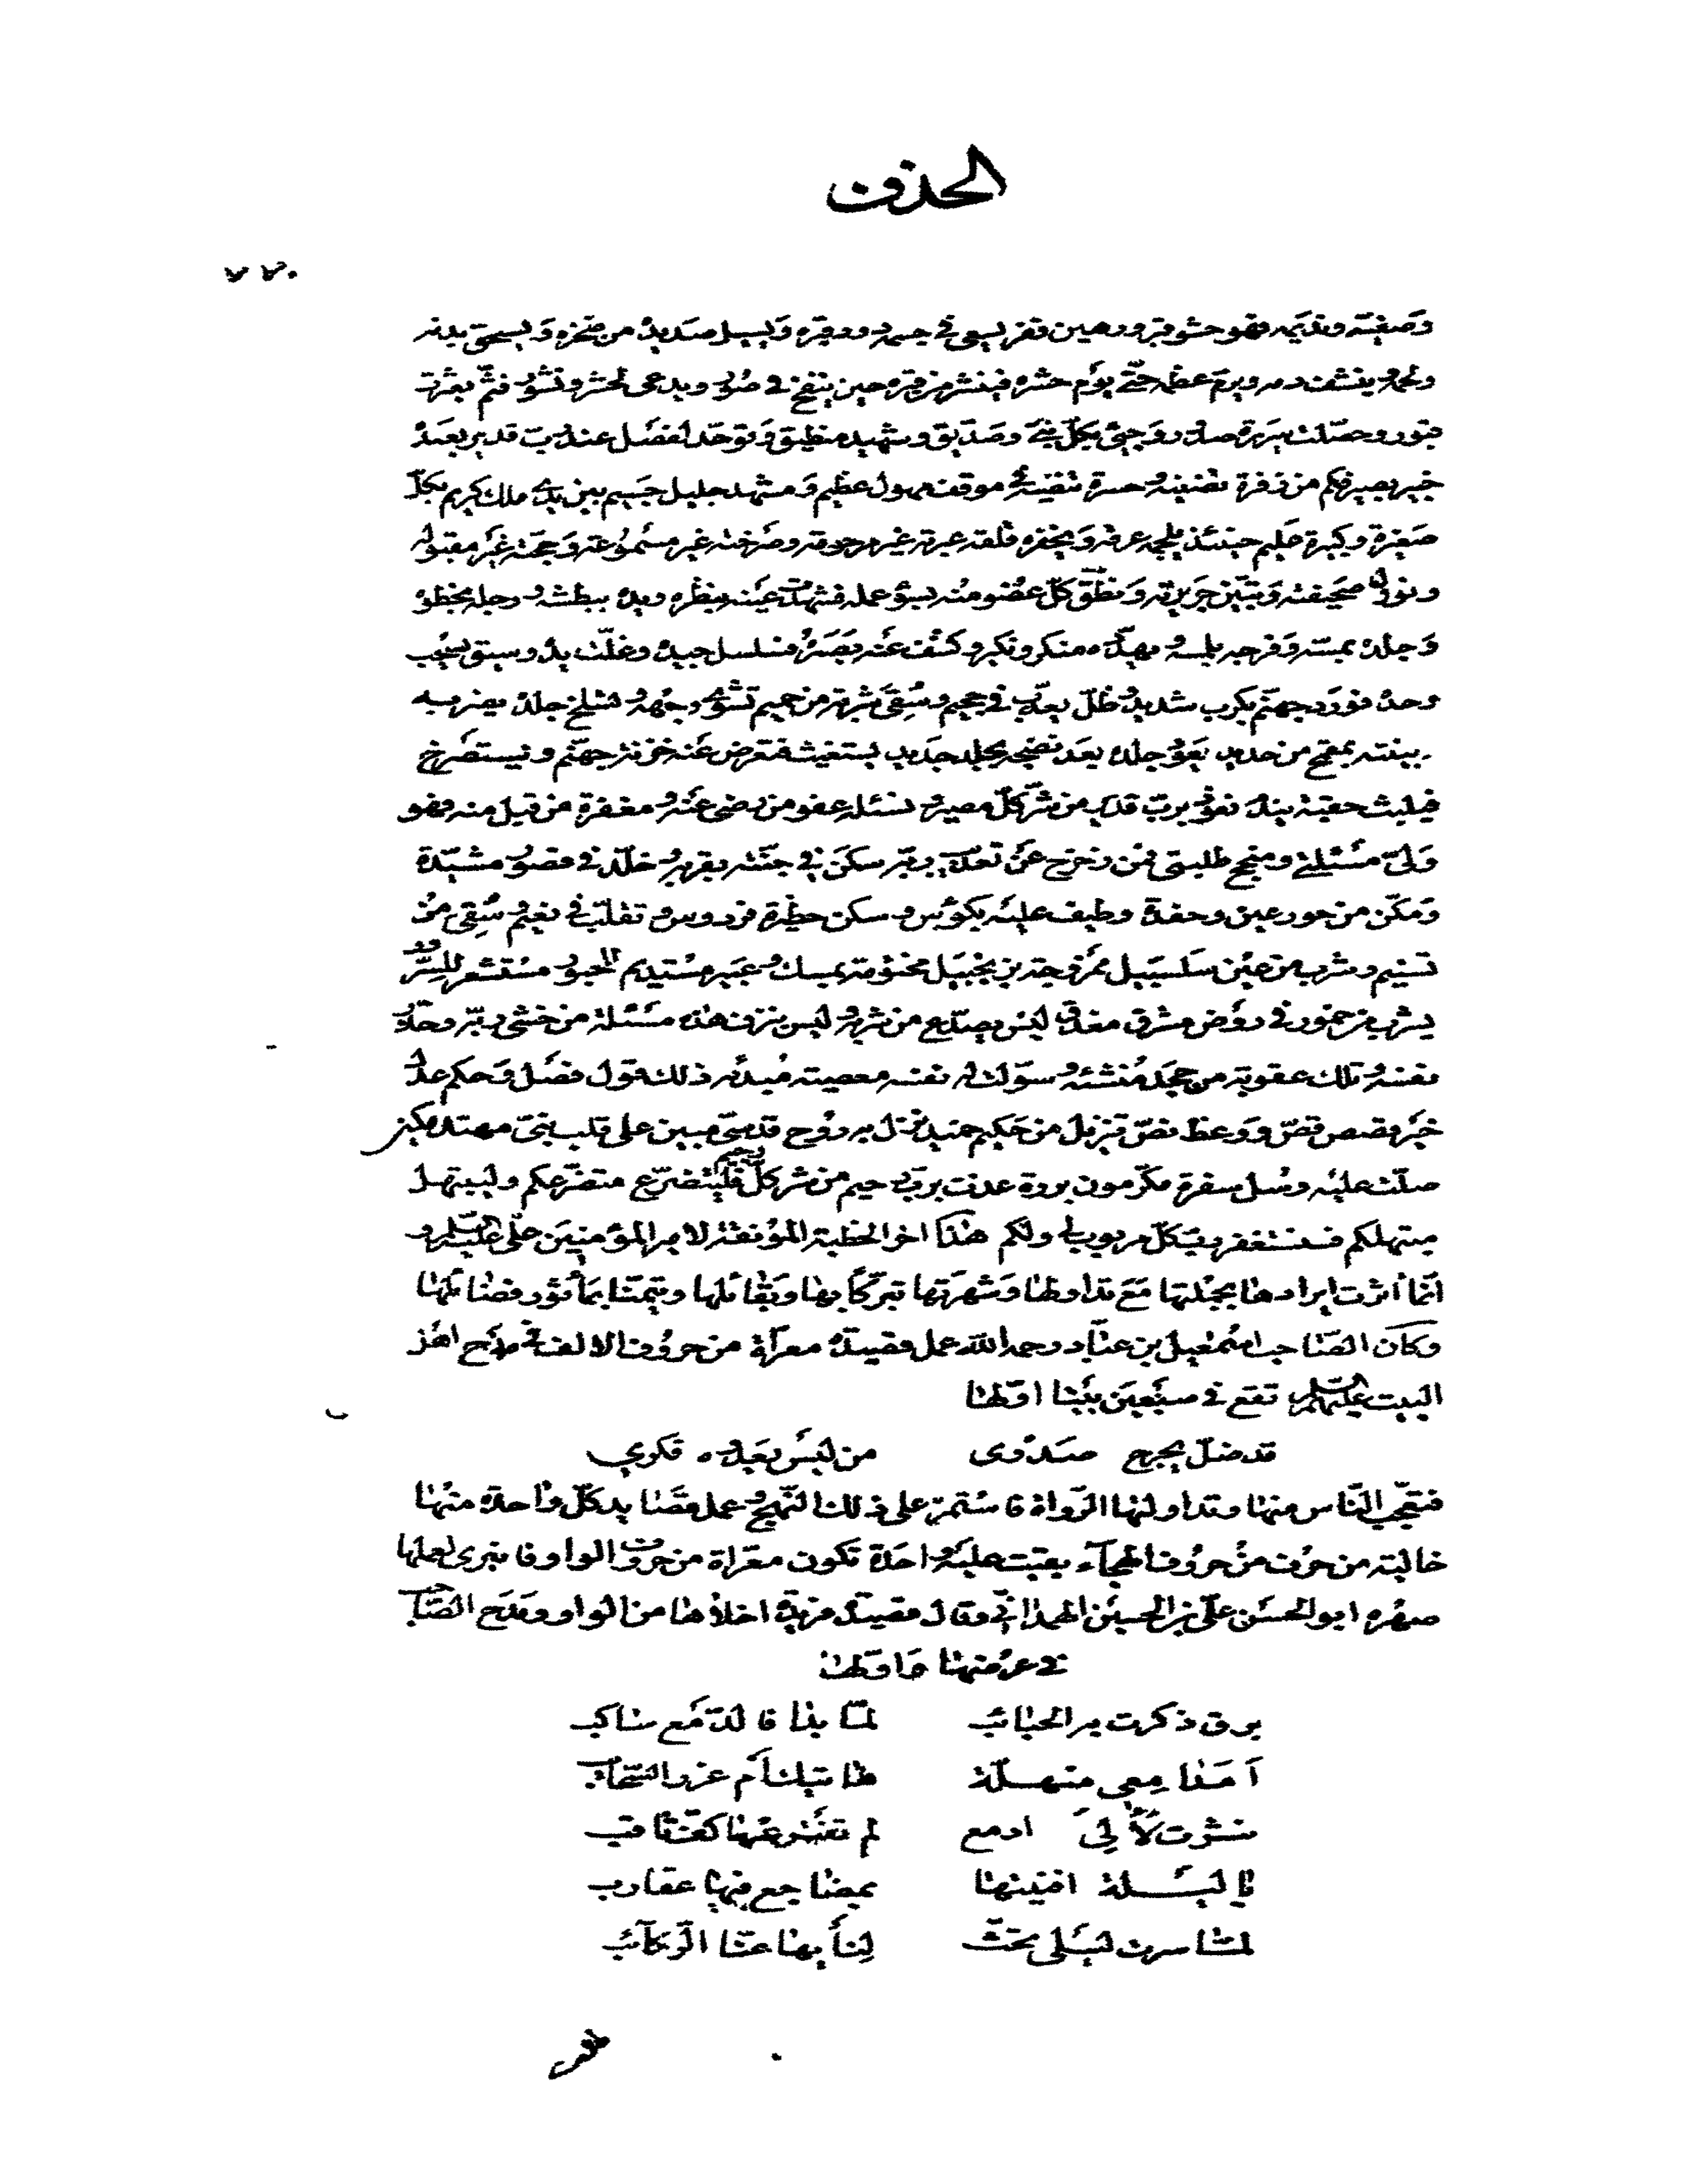 الحذف
٧٧٠
وصفيّه ونديمه فهو حشو قبر ورهين قفر يسعى في جسمه دود قبره ويسيل صديده من منخره ويسحق بدنه
ولحمه وينشف دمه ويرمّ عظمه حتّى يوم حشره فينشر من قبره حين ينفخ في صور ويدعى لحشر ونشور فثمّ بعثرت
قبور وحصّلت سريرة صدور وجيئ بكلّ نبيّ وصدّيق وشهيد منطيق وتوحّد لفصل عند ربّ قدير بعبده
خبير بصير فكم من زفرة تضنيه وحسرة تنضيه في موقف مهول عظيم ومشهد جليل جسيم بين يدي ملك كريم بكلّ
صغيرة وكبيرة عليم حينئذ يلجمه عرقه ويحفزه قلقه عبرته غير مرحومة وصرخته غير مسموعة وحجّته غير مقبولة
ونول صحيفته وتبيّن جريرته ونطق كلّ عضو منه بسوء عمله فشهدت عينه بنظره ويده ببطشه ورجله بخطوه
وجلده بمسّه وفرجه بلمسه ويهدّده منكر ونكير وكشف عنه بصره فسلسل جيده وغلّت يده وسيق يسحب
وحده فورد جهنّم بكرب شديد وظلّ يعذّب في جحيم وسقي شربة من حميم تشوي وجهه وتسلخ جلده يضربه
زبينته بمقمع من حديد يعود جلده بعد نضجه بجلد جديد يستغيث فتعرض عنه خزنة جهنّم ويستصرخ
فيلبث حقبة بندم نعوذ بربّ قدير من شرّ كلّ مصير ونسئله عفو من رضى عنه ومغفرة من قبل منه وهو
وليّ مسئلتي ومنجح طلبتي فمن زحزح عن تعذيب ربّه سكن في جنّته بقربه وخلّد في قصور مشيّدة
ومكّن من حور عين وحفدة وطيف عليه بكؤس وسكن حظيرة فردوس وتقلّب في نعيم وسقي من
تسنيم وشرب من عين سلسبيل ممزوجة بزنجبيل مختومة بمسك وعبير مستديم للحبور مستشعر للسرور
يشرب من خمور في روض مشرق مغدق ليس يصدّع من شربه وليس ينزف هذه مسئلة من خشي ربّه وحذّر
نفسه وتلك عقوبة من جحد منشئه وسوّلت له نفسه معصية مبدئه ذلك قول فصل وحكم عدل
خير قصص قصّ ووعظ نصّ تنزيل من حكيم حميد نزل به روح قدس مبين على قلب نبيّ مهتد مكين
صلّت عليه رسل سفرة مكرّمون بررة عذت بربّ رحيم من شرّ كلّ رجيم فليتضرّع متضرّعكم وليبتهل
مبتهلكم فنستغفر ربّ كلّ مربوب لي ولكم هذا اخر الخطبة المونقة لامير المؤمنين صلّى عليه السلام و
انّما اثرت ايرادها بجملتها مع تداولها وشهرتها تبرّكاً بها وبقائلها وتيمّنا بمأثور فضائلها
وكان الصّاحب اسمعيل بن عبّاد رحمه الله عمل قصيدة معرّاة من حروف الالف في مدح اهل
البيت عليهم السلم تقع في سبعين بيتا اوّلها
قد ضلّ يجرح صدري من ليس يعدوه فكري
فتعجّب النّاس منها وتداولتها الرّواة فاستمرّ على ذلك النّهج وعمل قصايد كلّ واحدة منها
خالية من حرف من حروف الهجآء بقيت عليه واحدة تكون معرّاة من حروف الواو فانبرى لعملها
صهره ابو الحسن عليّ بن الحسين الهمدانيّ وقال قصيدة فريدة اخلاها من الواو ومدح الصّاحب
في عرضها واوّلها
برق ذكرت به الحبائب لمّا بدا فالدّمع ساكب
أمدامعي منهلّة هاتيك أم غزر السّحائب
نثرت لآلي ادمع لم تفترعها كفّ ثاقب
يا ليلة افنيتها بمضاجع فيها عقارب
لمّا سرت ليلى تخبّ لنأيها عنّا الرّكائب